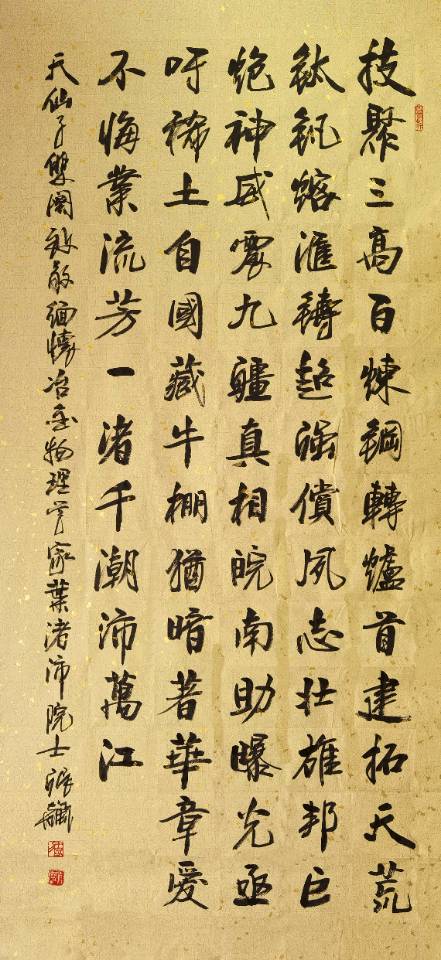 技聚三高百煉鋼轉爐首建拓天荒
鈦釩熔滙鑄超強償夙志壯雄邦巨
炮神威震九疆真相皖南助曝光亟
吁稀土自國藏牛棚猶暗著華章愛
不悔業流芳一渚千潮沛萬江
天仙子雙闋致敬緬懷冶金物理學家葉渚沛院士張